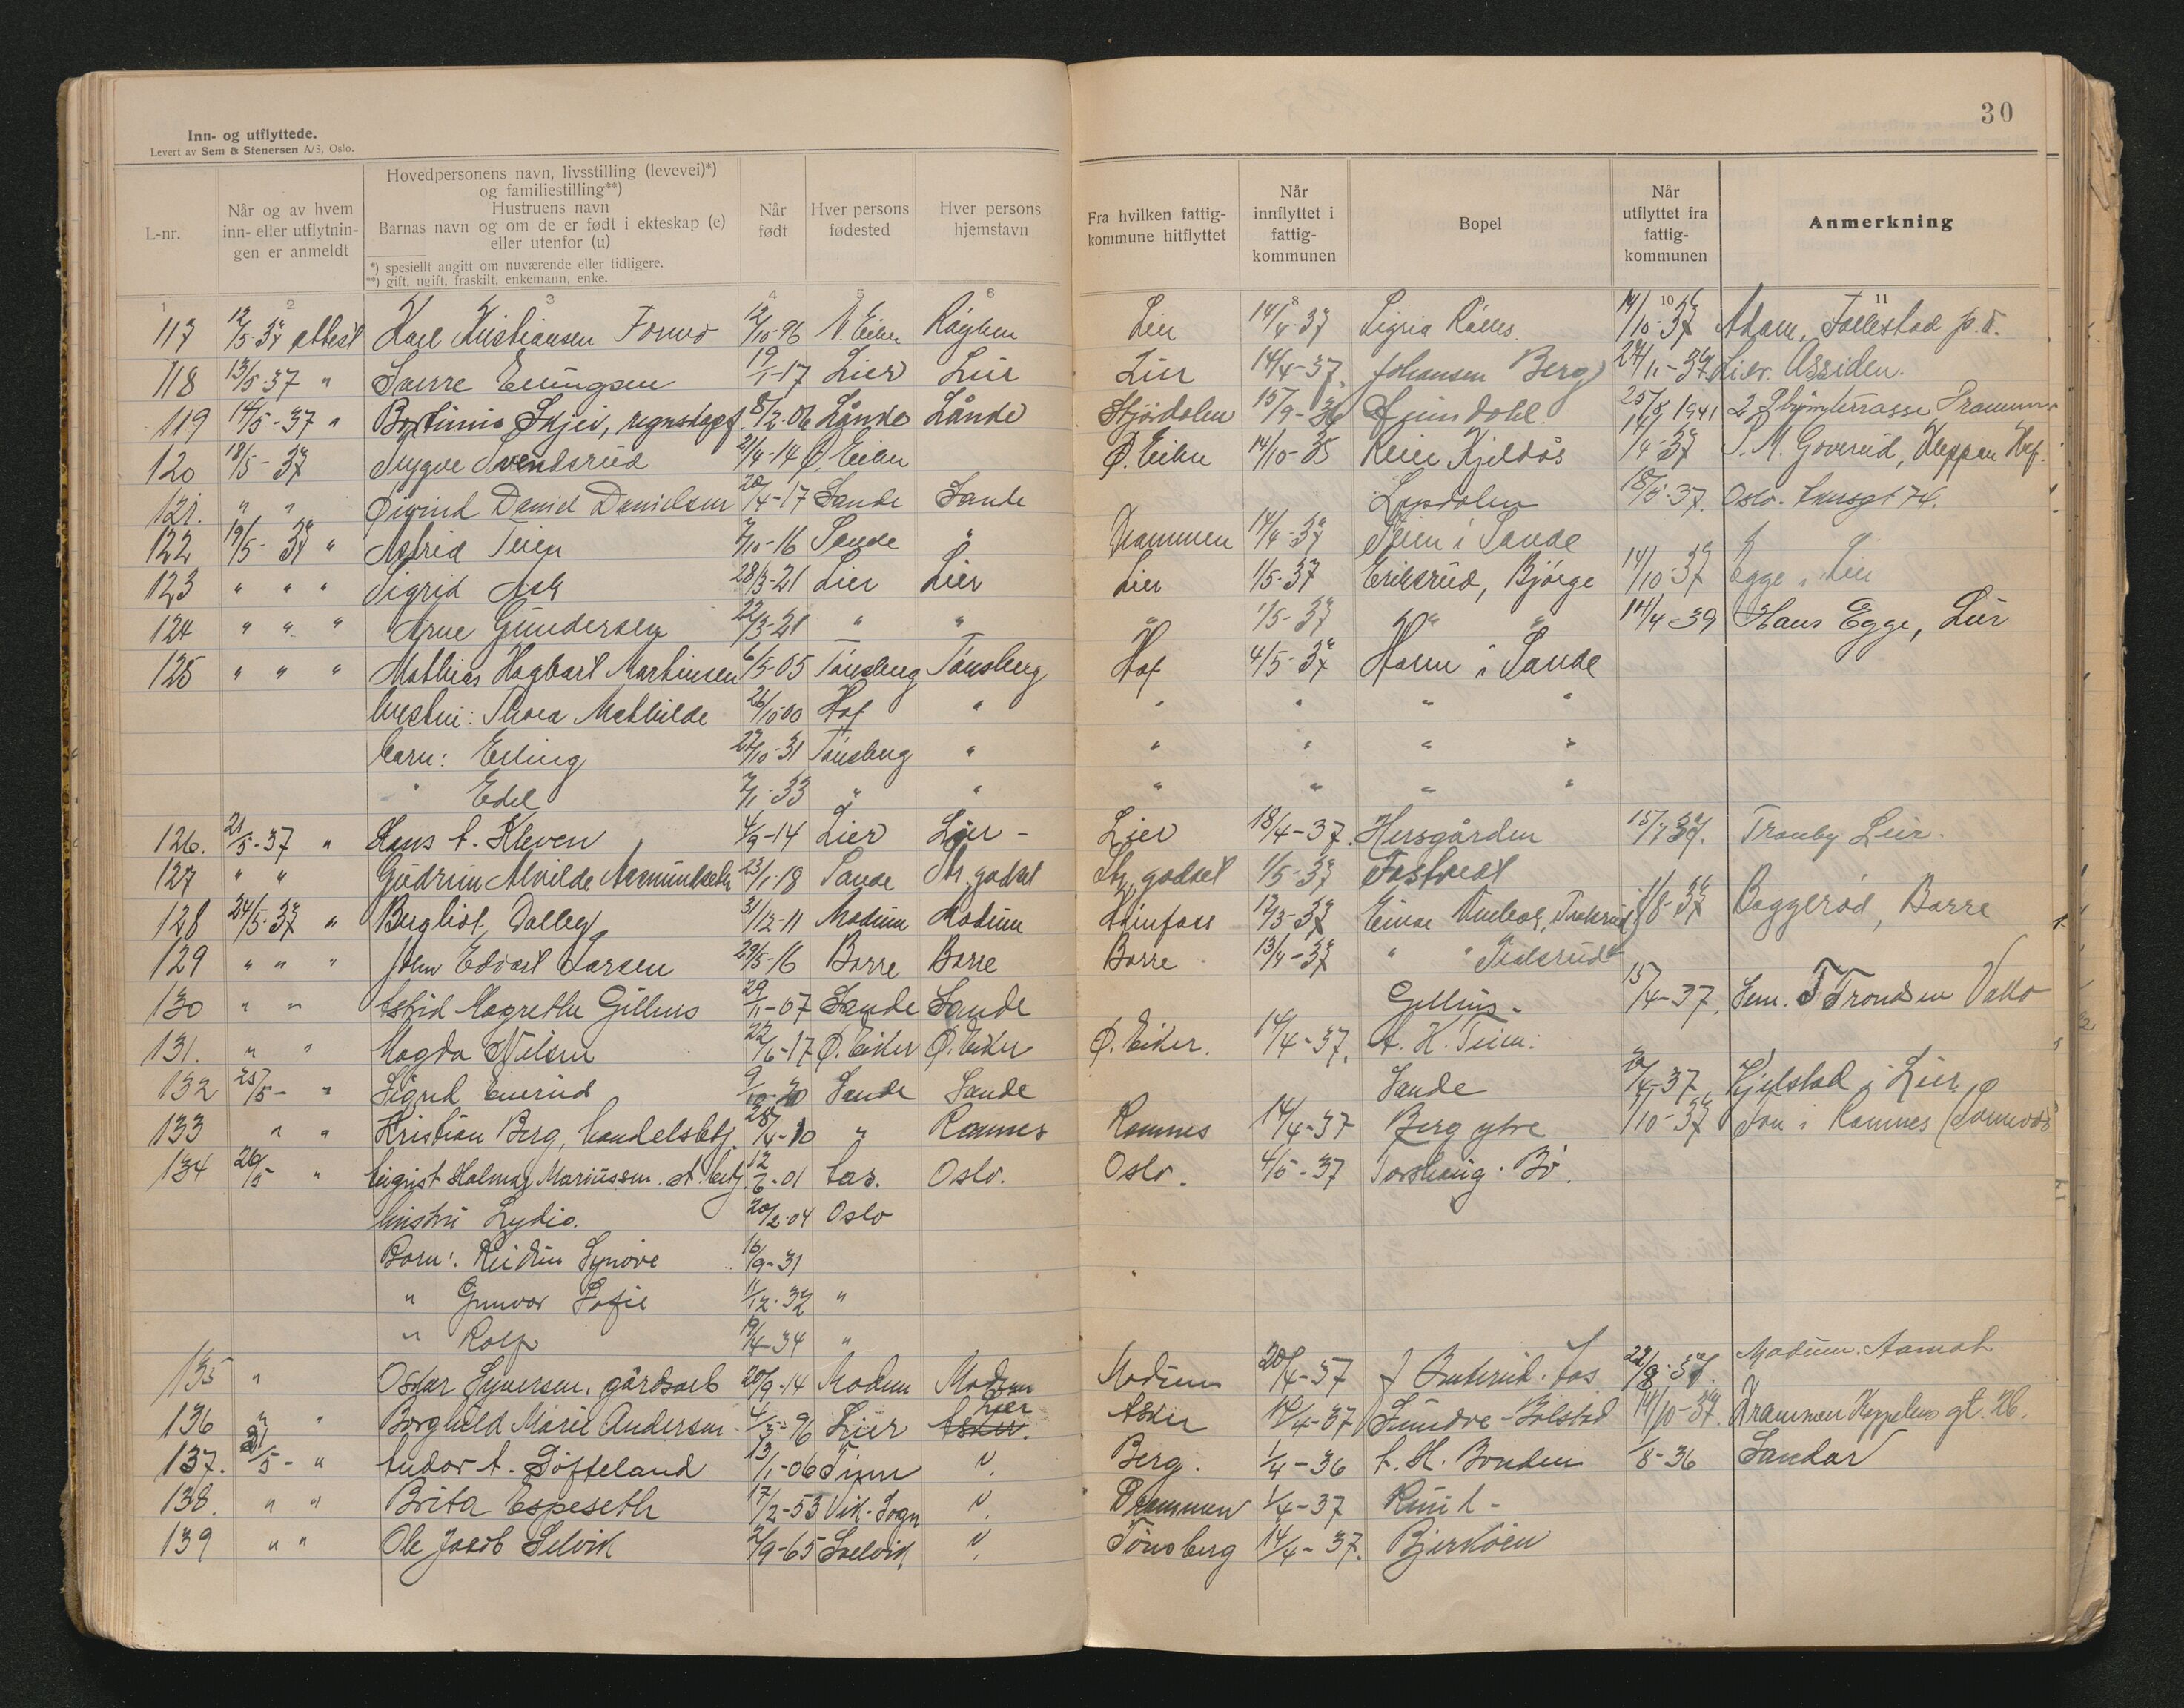 30
Inn- og utflyttede.
Levert av Sem & Stenersen A/S, Oslo.
L-nr.
Når og av hvem inn- eller utflytnin- gen er anmeldt
Hovedpersonens navn, livsstilling (levevei)*) og familiestilling**)
Hustruens navn
Barnas navn og om de er født i ekteskap (e) eller utenfor (u)
*) spesiellt angitt om nuværende eller tidligere.
**) gift, ugift, fraskilt, enkemann, enke.
Når født
Hver persons fødested
Hver persons hjemstavn
Fra hvilken fattig- kommune hitflyttet
Når innflyttet i fattig- kommunen
Bopel
Når utflyttet fra fattig- kommunen
Anmerkning
1 2 3 4 5 6 8 10 11
117 12/5-37 attest Karl Kristiansen 12/10-96 N. Eiker Lier 14/4-37 14/10-37 Adam, Follestad p.å.
118 13/5-37 " Sverre Erlingsen 19/1-17 Lier Lier Lier 14/4-37 Johansen Berg 24/11-37 Lier. Åssiden.
119 14/5-37 " Skjei, 8/12-06 Lånde Lånde Stjørdalen 15/9-36 25/8 1941
120 18/5-37 Trygve Svendsrud 21/4-14 Ø. Eiker Ø. Eiker 14/10-35 14/4-37 Hof.
121. " " Øivind Daniel Danielsen 20/4-17 Sande Sande 18/5-37. Oslo. 74.
122 19/5-37 " Astrid Teien 7/10-16 Sande " Drammen 14/4-37 Teien i Sande
123 " " " Sigrid Ask 28/3-21 Lier Lier Lier 1/5-37 Eriksrud, Bjørge 14/10-37 Egge i Lier
124 " " " Arne Gundersen 22/3-21 " " " 1/5-37 " " 14/4-39 Hans Egge, Lier
125 " " " Mathias Hagbart Martinsen 6/5-05 Tønsberg Tønsberg Hof 4/5-37 Hann i Sande
hustru: Thora Mathilde 26/10-00 Hof " " " " "
barn: Erling 27/10-31 Tønsberg " " " " "
" Edel 7/1-33 " " " " " "
126. 21/5-37 " Hans A. Kleven 4/9-14 Lier Lier - Lier 18/4-37. Hersgården 15/7 37. Tranby Lier.
127 " " Gudrun Alvilde 23/1-18 Sande Str. godset Str. godset 1/5-37
128 24/5-37 " Bergliot Dalley 31/12-11 Modum Modum 12/3-37 Einar 1/8-37 Baggerød, Borre
129 " " " John Edvart Larsen 29/5-16 Borre Borre Borre 13/4-37 "
130 " " Astrid Magrethe Gillius 29/11-07 Sande Sande Gillius. 15/4-37. Sem. T Trondsen Vallø
131. " " Magda Nilsen 22/6-17 Ø. Eiker Ø. Eiker Ø. Eiker. 14/4-37. A. H. Teien.
132 25/5- " Sigrid 9/10-20 Sande Sande Sande 20/4-37 Kjelstad i Lier
133 " " Kristian Berg, handelsbetj. 28/4-10 " Ramnes Ramnes 14/4-37 Berg ytre 1/10-37 i Ramnes
134 26/5 " Holmar Mariussen. 12/6-01 Aas. Oslo. Oslo. 4/5-37 Torshaug. Bø.
hustru Lydia. 20/2-04 Oslo
Barn: Reidun Synøve 16/9-31
" Gunvor Sofie 11/12-32 "
" Rolf 19/4-34 "
135 " Oskar Syversen, gårdsarb 20/9-14 Modum Modum Modum 20/4-37 Aas 22/8-37. Modum. Aamot
136 " " Borghild Marie Andersen 4/5-96 Lier Lier Asker. Asker 14/4-37 Sundve-Bolstad 14/10-37. Drammen gt. 26.
137. 21/5- " Andor A. Løfteland 13/1-06 Tinn ". Berg. 1/4-36 A. H. Bonden 1/8-36 Sandar
138. " " Brita Espeseth 17/2-53 Vik. Sogn ". Drammen 1/4-37
139 " " Ole Jacob Selvik 2/9-65 Selvik ". Tønsberg 14/4-37. Bjerkøen